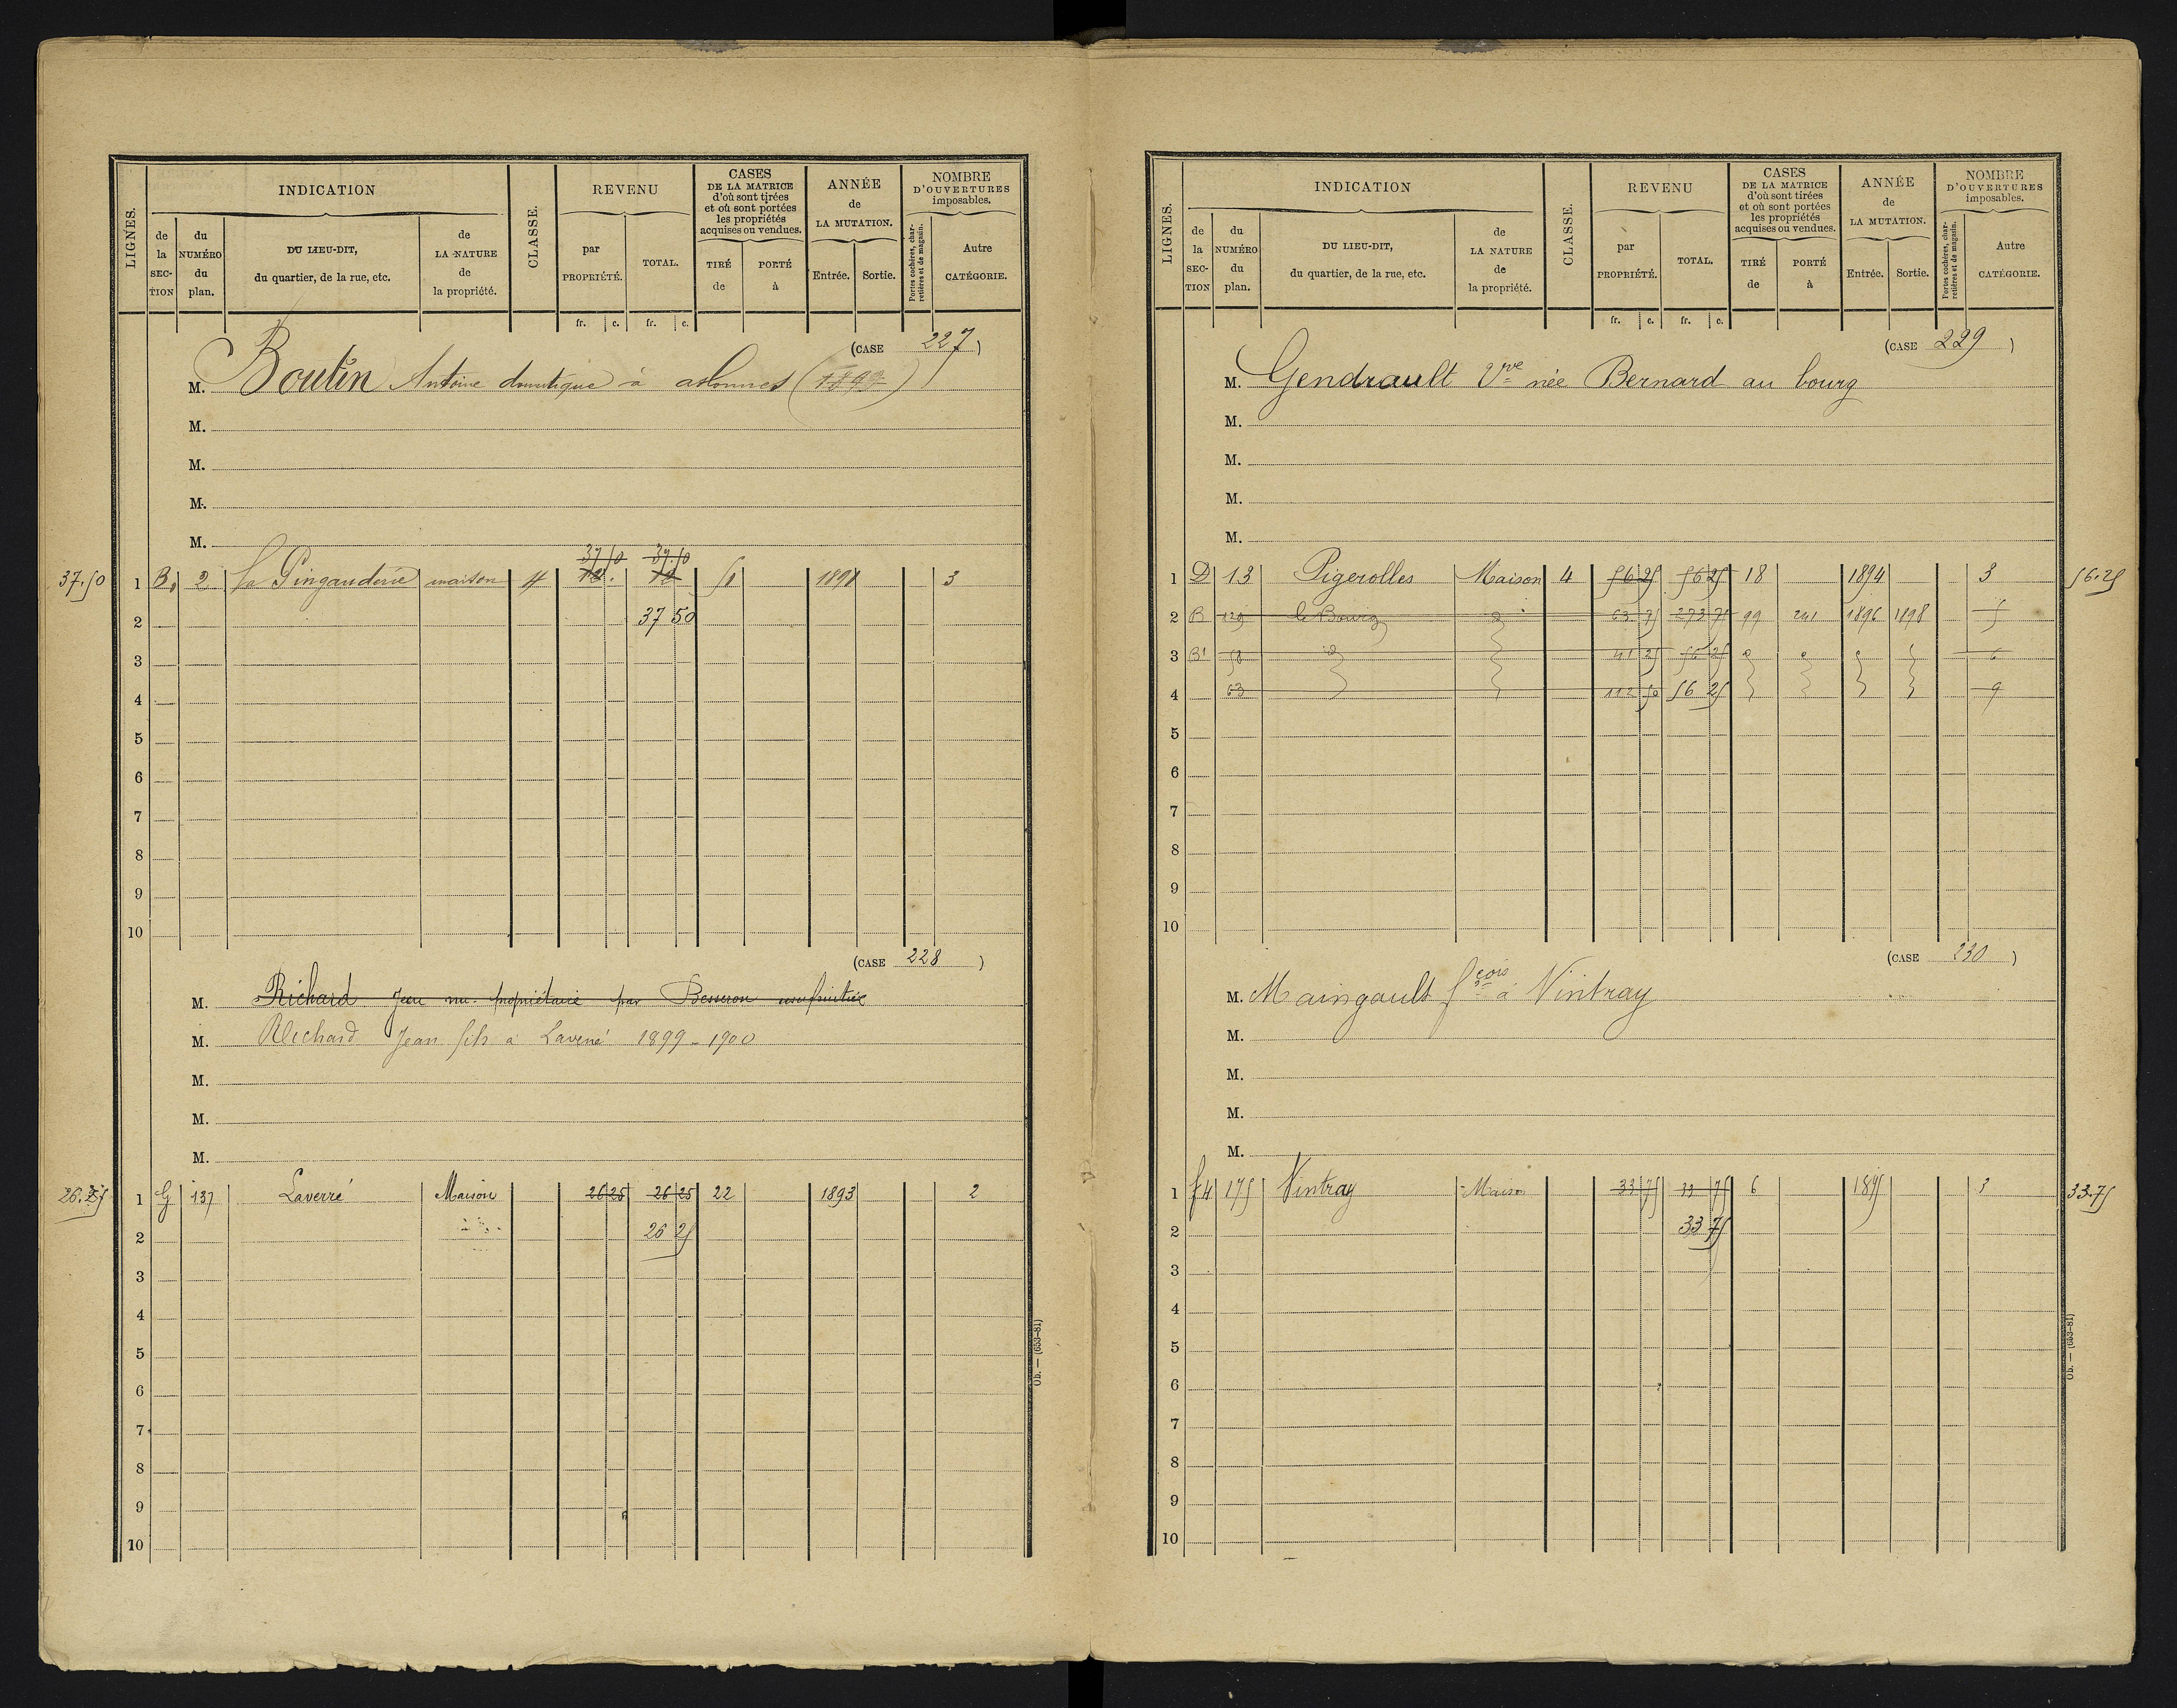 LIGNES.
INDICATION
de la SECTION
du NUMÉRO du plan.
DU LIEU-DIT, du quartier, de la rue, etc.
de LA NATURE de la propriété.
CLASSE.
REVENU
par PROPRIÉTÉ.
TOTAL.
CASES DE LA MATRICE d'où sont tirées et où sont portées les propriétés acquises ou vendues.
TIRÉ de
PORTÉ à
ANNÉE de LA MUTATION.
Entrée.
Sortie.
NOMBRE D'OUVERTURES imposables.
Portes cochères, charretières et de magasin.
Autre CATÉGORIE.
fr. c. fr. c.
(CASE 227)
M. Boutin Antoine à
M.
M.
M.
M.
37.50 1 B 2 la Pingauderie maison 4 37 50 37.50 12. 12 51 1891 3
2 37 50
3
4
5
6
7
8
9
10
(CASE 228)
M. Richard Jean nu-propriétaire par Besseron usufruitière
M. Richard Jean fils à Laverré 1899-1900
M.
M.
M.
26.25 1 G 137 Laverré Maison 26 25 26 25 22 1893 2
2 26 25
3
4
5
6
7
8
9
10
Ob. — (653-81)
LIGNES.
INDICATION
de la SECTION
du NUMÉRO du plan.
DU LIEU-DIT, du quartier, de la rue, etc.
de LA NATURE de la propriété.
CLASSE.
REVENU
par PROPRIÉTÉ.
TOTAL.
CASES DE LA MATRICE d'où sont tirées et où sont portées les propriétés acquises ou vendues.
TIRÉ de
PORTÉ à
ANNÉE de LA MUTATION.
Entrée.
Sortie.
NOMBRE D'OUVERTURES imposables.
Portes cochères, charretières et de magasin.
Autre CATÉGORIE.
fr. c. fr. c.
(CASE 229)
M. Gendrault Vve née Bernard au bourg
M.
M.
M.
M.
1 D 13 Pigerolles Maison 4 56 25 56 25 18 1894 3 56.25
2 B 129 le Bourg d 63 75 273 75 99 241 1896 1898 5
3 B1 58 d 41 25 56 25 6
4 63 112 50 56 25 9
5
6
7
8
9
10
(CASE 230)
M. Maingault fçois à Vintray
M.
M.
M.
M.
1 f4 175 Vintray Maison 33 75 33 75 6 1895 3 33.75
2 33 75
3
4
5
6
7
8
9
10
Ob. — (653-81)